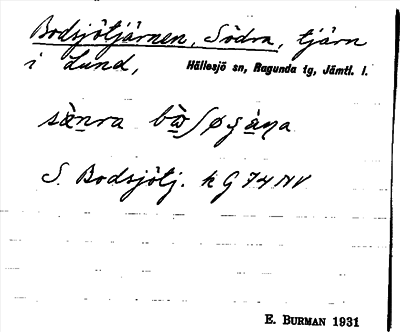 Bodsjötjärnen, Södra, tjärn
i Lund, Hällesjö sn, Ragunda tg, Jämtl. l.
S. Bodsjötj. h G 74 NV
E. BURMAN 1931